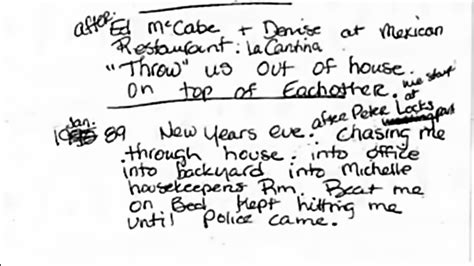 after Ed McCabe + Denise at Mexican
Restaurant: La Cantina
"Throw" us out of house.
on top of Eachother. we start
Jan. 89 New Years eve. after Peter Locks chasing me
through house. into office
into backyard into Michelle
housekeepers Rm. Beat me
on Bed Kept hitting me
until Police came.